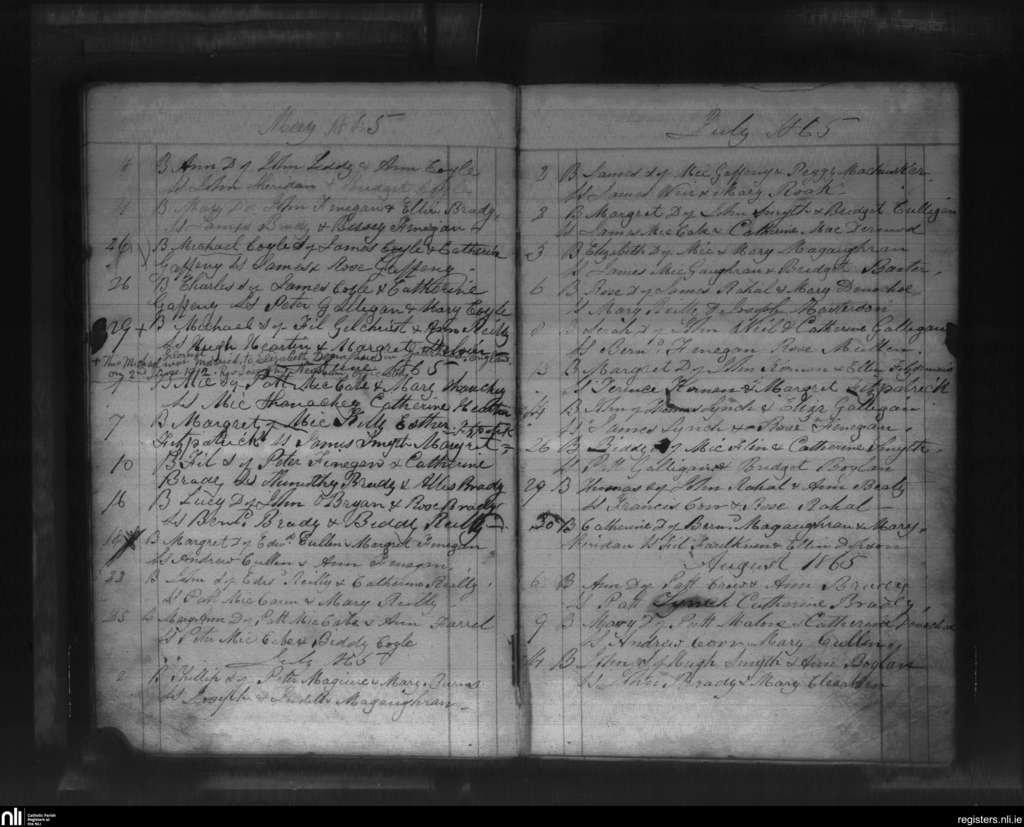 May 1865
4 B Ann D of John Leddy & Ann Coyle
Ss John Sheridan & Bridget Coyle
11 B Mary D of John Finegan & Ellin Brady
Ss James Brady & Bessey Finegan
26 B Michael Coyle S of James Coyle & Catherin
Gaffeny Ss James & Rose Gaffeny
26 B Charles S of James Coyle & Catherine
Gaffeny Ss Peter Galligan & Mary Coyle
29 + B Michael S of Fil Gilchrist & Ann Reilly
Ss Hugh Heartin & Margret
+ This Michael Gilchrist was married to Elizabeth
on 2nd June 1912
1865
7 B Mic S of Patt Mic Cabe & Mary Shanachey
Ss Mic Shanachey Catherine Heartin
7 B Margret D of Mic Reilly Esther Fitzpatrick
Fitzpatrick Ss James Smyth Margret
10 B Fil S of Peter Finegan & Catherine
Brady Ss Thimothy Brady & Alis Brady
16 B Lucy D of John O Bryan & Rose Brady
Ss Bernd Brady & Biddy Reilly
B Margret D of Edwd Cullen & Margret Finegan
Ss Andrew Cullen & Ann Finegan
23 B John S of Edwd Reilly & Catherine Reilly
Ss Patt Mic Cann & Mary Reilly
25 B Margret Ann D of Patt Mic Cabe & Ann Farrel
Ss Patt Mic Cabe & Biddy Coyle
July 1865
2 B Phillip S of Peter Maguire & Mary Burns
Ss Joseph & Judith Magaughran
July 1865
2 B James S of Mic Gaffeny & Peggy
Ss James Weir & Mary Roak
2 B Margret D of John Smyth & Bridget Culligan
Ss James Mic Cabe & Catherine Mac Dermod
3 B Elizabeth D of Mic & Mary Magaughran
Ss James Mic Gaughran & Bridget Baxter
6 B Rose D of James Rahal & Mary Donohoe
Ss Mary Reilly & Joseph Masterson
8 B Sarah D of John Weil & Catherine Galligan
Ss Bernd Finegan Rose Mullen
13 B Margret D of John Kernan & Ellin Fitzsimons
Ss Terence Kernan & Margret Fitzpatrick
14 B John S of Lynch & Eliza Galligan
Ss James Lynch & Rose Finegan
26 B Biddy D of Mic Flin & Catherine Smyth
Ss Patt Galligan & Bridget Boylan
29 B Thomas S of John Rahal & Ann Beaty
Ss Francis Crow & Rose Rahal
30 B Catherine D of Bernd Magaughran & Mary
Ss Fil Faulkner & Ellin
August 1865
6 B Ann D of Patt Crow & Ann
Ss Patt Lynch Catherine Brady
9 B Mary D of Patt Malone & Catherine Donochoe
Ss Andrew Corr Mary Cullen
14 B John S of Hugh Smyth & Ann Boylan
Ss John Brady & Mary
nli
Catholic Parish
Registers at
the NLI
registers.nli.ie